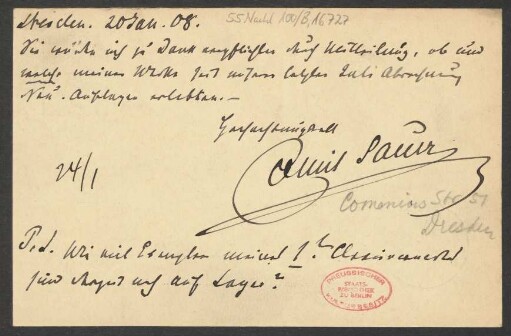 Dresden. 20 Jan. 08.
55 Nachl 100/B, 16727
Sie würden mich zu Dank verpflichten durch Mitteilung, ob und
welche meiner Werke seit unserer letzten Juli Abrechnung
Neu-Auflagen erlebten.—
Hochachtungsvoll
Emil Sauer
24/1
Comenius Str 51
Dresden
P.S. Wie viel Exemplare meines 1. Clavierconcertes
sind augenbl. noch auf Lager?
PREUSSISCHER
STAATS-
BIBLIOTHEK
ZU BERLIN
KULTURBESITZ